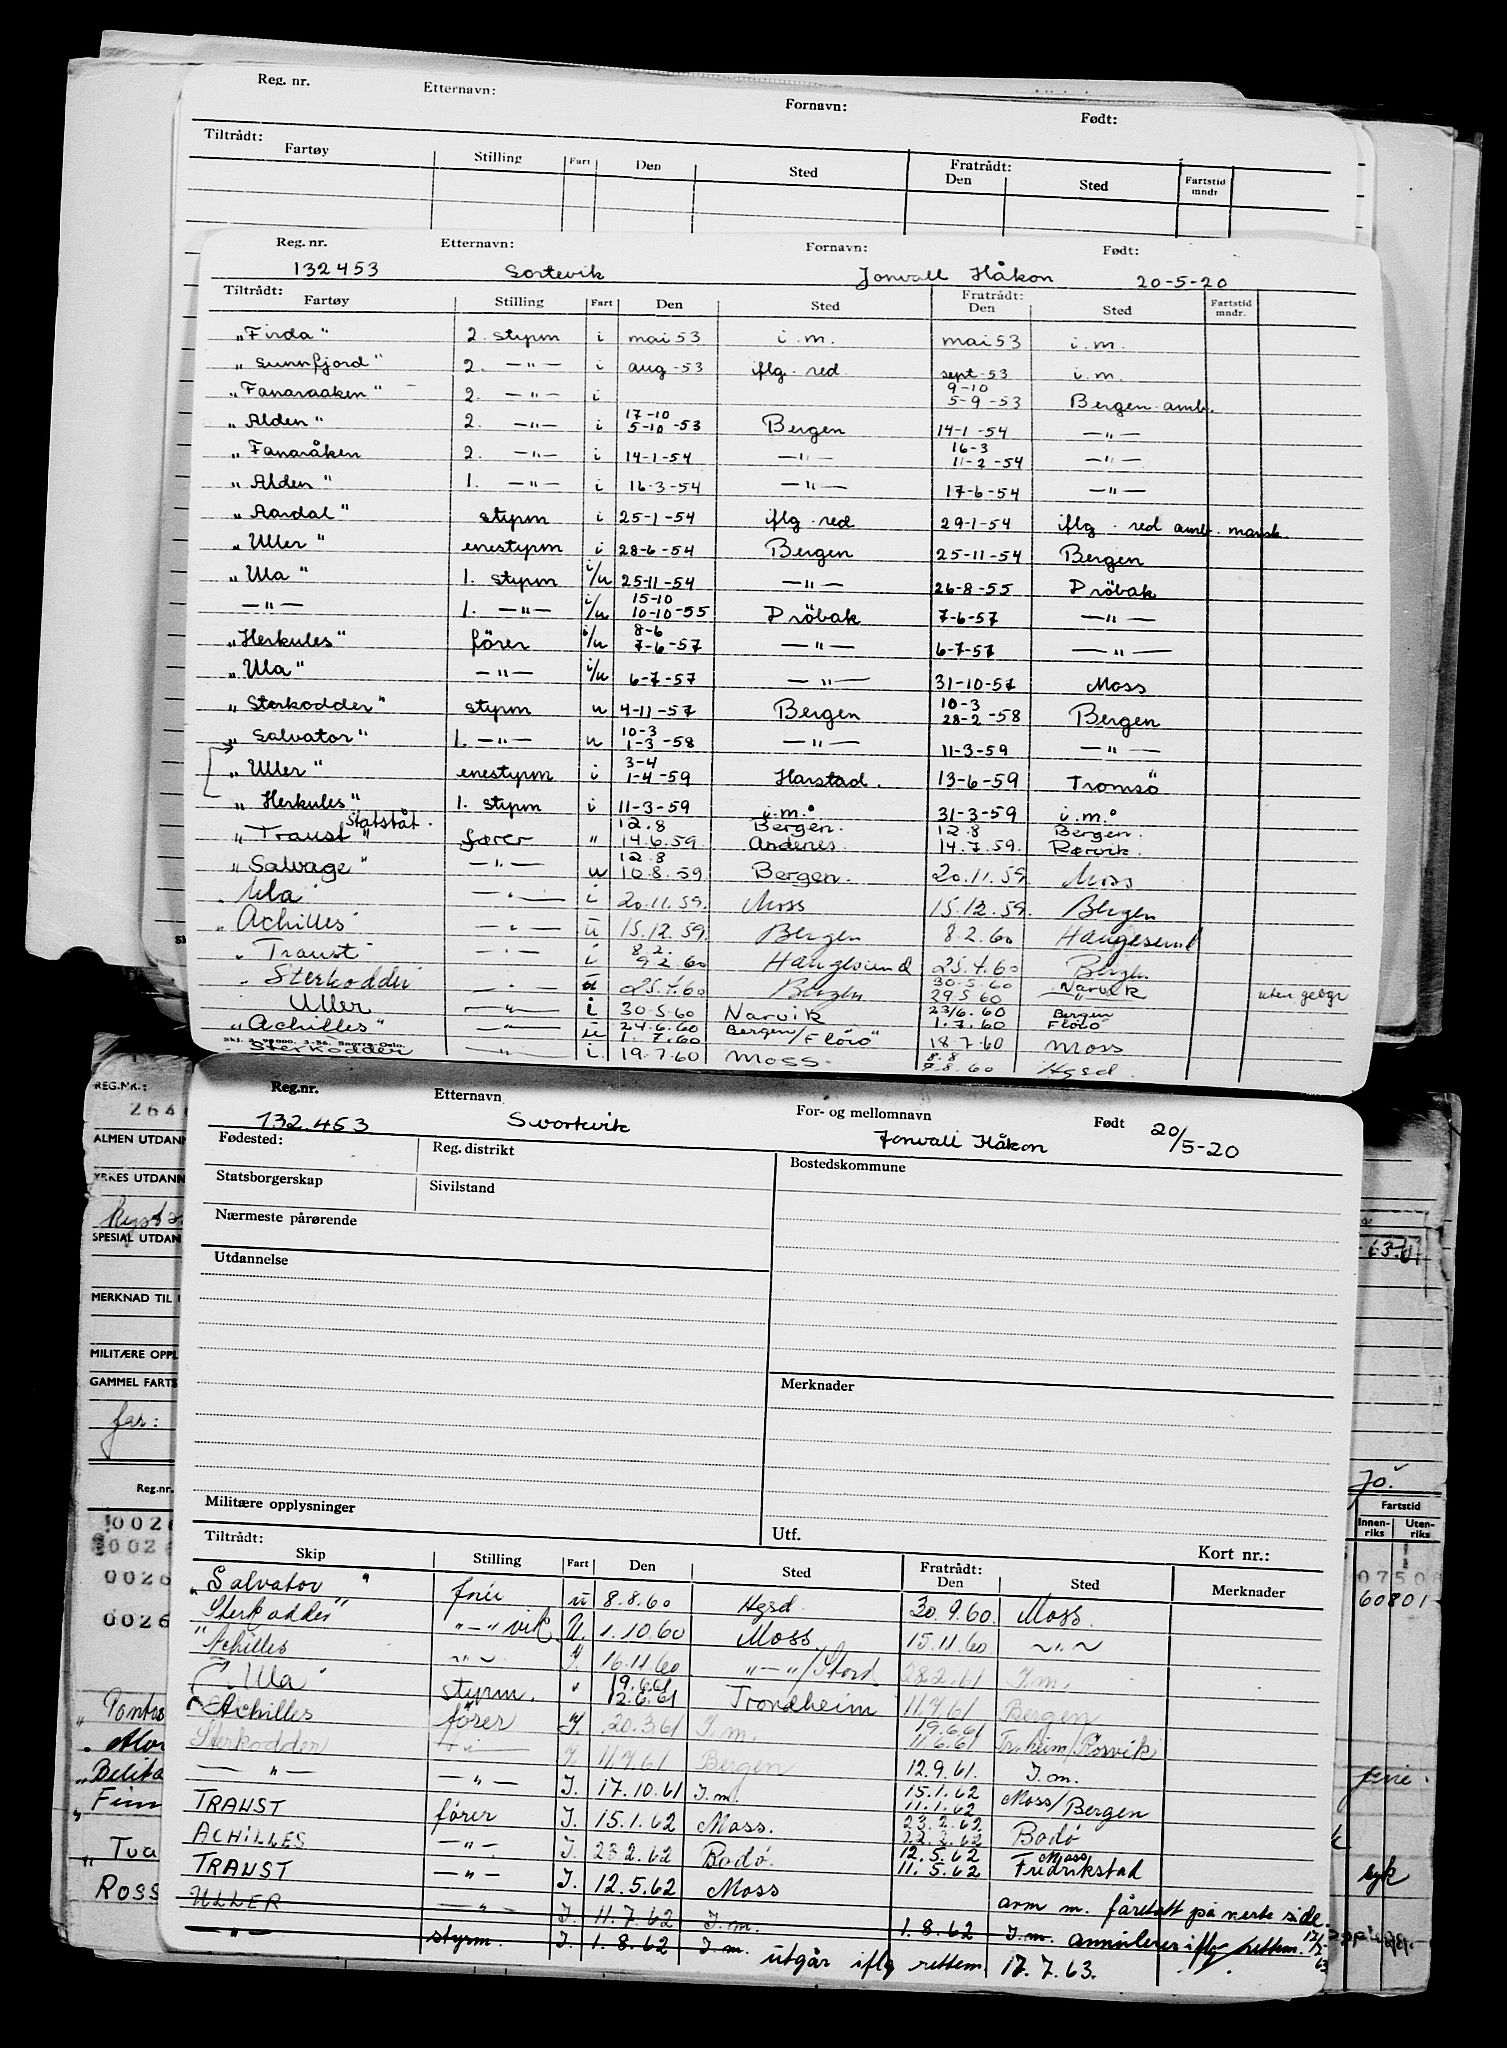 Reg. nr. Etternavn: Fornavn: Født:
Tiltrådt: Fratrådt:
Fartøy Stilling Fart Den Sted Den Sted Fartstid mndr
Reg. nr. Etternavn: Fornavn: Født:
132453 Sortevik Jonvall Håkon 20-5-20
Tiltrådt: Fratrådt:
Fartøy Stilling Fart Den Sted Den Sted Fartstid mndr.
„Firda" 2. styrm i mai 53 i.m. mai 53 i.m.
„Sunnfjord" 2. —"— i aug-53 iflg. red. sept-53 i.m.
„Fanaraaken" 2. —"— i 9-10 5-9-53 Bergen amb.
„Alden" 2. —"— i 17-10 5-10-53 Bergen 14-1-54 —"—
„Fanaråken 2. —"— i 14-1-54 —"— 16-3 11-2-54 —"—
„Alden" 1. —"— i 16-3-54 —"— 17-6-54 —"—
„Aardal" styrm i 25-1-54 iflg. red 29-1-54 iflg. red amb. mønst.
„Uller" enestyrm i 28-6-54 Bergen 25-11-54 Bergen
„Ula" 1. styrm i/u 25-11-54 —"— 26-8-55 Dröbak
—"— 1. —"— i/u 15-10 10-10-55 Dröbak 7-6-57 —"—
„Herkules" förer i/u 8-6 7-6-57 —"— 6-7-57 —"—
„Ula" —"— i/u 6-7-57 —"— 31-10-57 Moss
„Sterkodder" styrm u 4-11-57 Bergen 10-3 28-2-58 Bergen
„Salvator" 1. —"— u 10-3 1-3-58 —"— 11-3-59 —"—
„Uller" enestyrm i 3-4 1-4-59 Harstad. 13-6-59 Tromsö
„Herkules" 1. styrm i 11-3-59 i.m. 31-3-59 i.m.
Statsbåt. 12.8 Bergen. 12.8 Bergen.
„Traust" fører " 14.6.59 Andenes. 14.7.59. Rørvik.
„Salvage" —"— u 12.8 10.8.59 Bergen. 20.11.59. Moss
„Ula" —"— i 20.11.59. Moss 15.12.59. Bergen
„Achilles" —"— u 15.12.59. Bergen 8.2.60 Haugesund
„Traust" —"— i 8.2. 9.2.60 Haugesund 25.4.60 Bergen
„Sterkodder —"— u 25.4.60 Bergen 30.5.60 29.5.60 Narvik —"— uten gebyr
Uller —"— i 30.5.60 Narvik 23/6.60 1.7.60 Bergen Florö
„Achilles" —"— u 24.6.60 1.7.60 Bergen/Florö 18.7.60 Moss
„Sterkodder —"— i. 19.7.60 Moss. 8.8 7.8.60 Hgsd.
Reg.nr. Etternavn For- og mellomnavn Født
132.453 Svortevik Jonvall Håkon 20/5-20
Fødested: Reg. distrikt Bostedskommune
Statsborgerskap Sivilstand
Nærmeste pårørende
Utdannelse
Merknader
Militære opplysninger Utf. Kort nr.:
Tiltrådt: Fratrådt:
Skip Stilling Fart Den Sted Den Sted Merknader
„Salvator" u 8.8.60 Hgsd. 30.9.60. Moss.
Sterkodder" —"— vik U. 1.10.60 Moss. 15.11.60 ~"~
"Achilles ~"~ I. 16.11.60 "—"/Stord 28.2.61 I.m.
Ula" styrm. " 19.6.61 12.6.61 Trondheim 11.7.61 Bergen
Achilles fører I. 20.3.61 I.m. 19.6.61 11.6.61 Tr.heim/Rørvik
Sterkodder —"— I. 11.7.61 Bergen 12.9.61. I.m.
—"— —"— I. 17.10.61 I.m. 15.1.62 11.1.62 Moss/Bergen
TRAUST fører I. 15.1.62 Moss. 23.2.62 22.2.62 Bodø
ACHILLES —"— I. 23.2.62 Bodø. 12.5.62 11.5.62 Moss Fredrikstad
TRAUST —"— I. 12.5.62 Moss avm m. påreist på neste side.
ULLER —"— I. 11.7.62 I.m. 1.8.62 I.m. annuleres iflg rettem. 17/7-63
—"— styrm. I. 1.8.62 I.m. utgår iflg rettem 17.7.63.
REG.NR.:
264
ALMEN UTDANN
YRKES UTDANN
Kyst
SPESIAL UTDAN
MERKNAD TIL
MILITÆRE OPPL
GAMMEL FARTS
far:
Reg.nr.
0026
0026
0026
0026
„Belita
„Finn
„Tva
ROSS
Jo.
Fartstid
Innen-riks Uten-riks
0750
60801
ferie.
syk